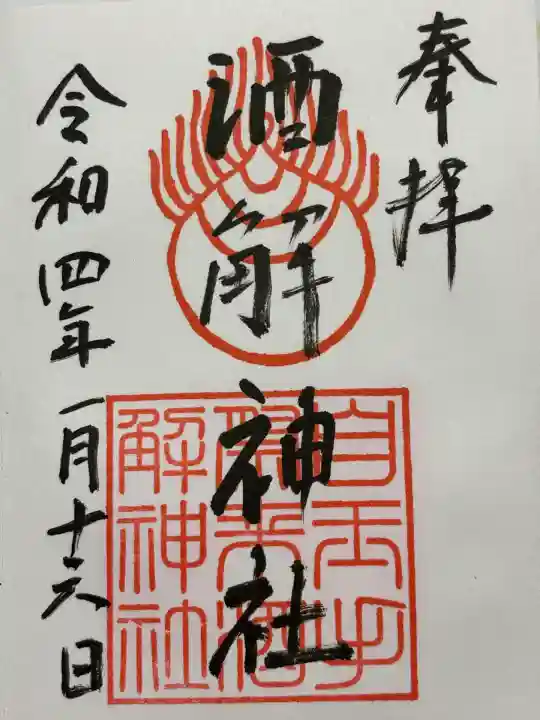 奉拝
酒解神社
自玉手
来酒
解神社
令和四年一月十六日